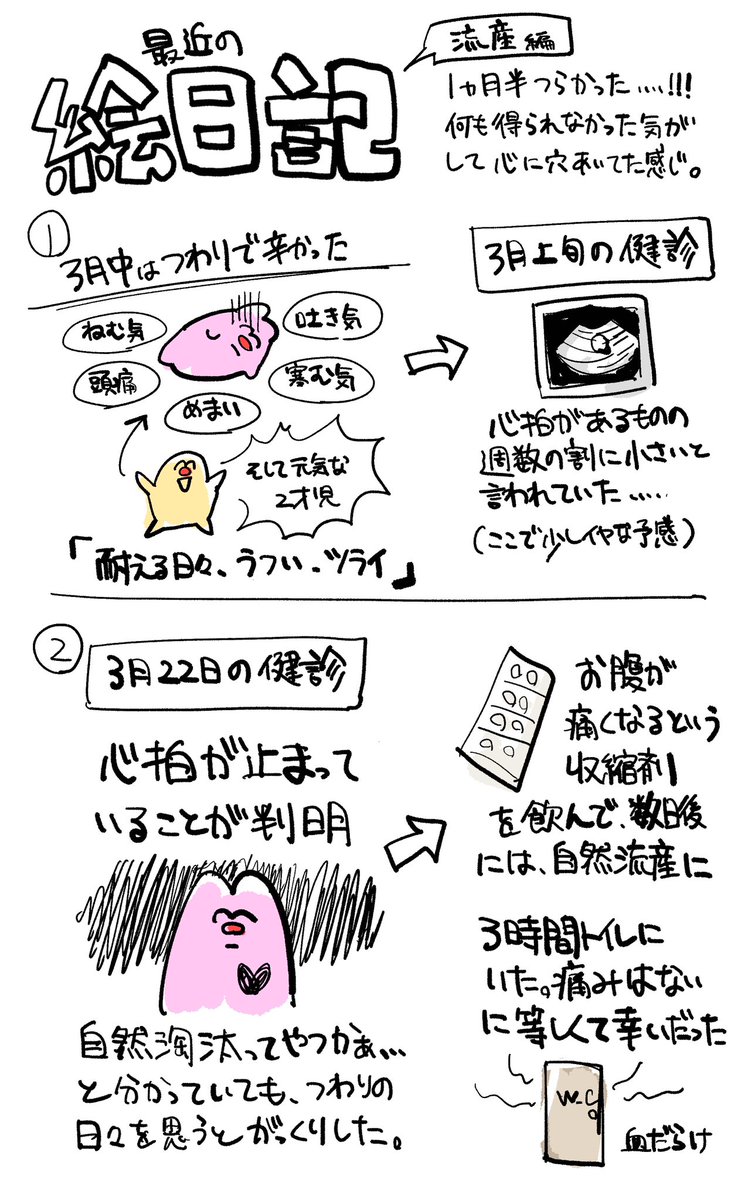 最近の
絵日記
流産編
1ヵ月半つらかった....!!!
何も得られなかった気が
して心に穴あいてた感じ。
①
3月中はつわりで辛かった
ねむ気
吐き気
頭痛
寒む気
めまい
そして元気な
2才児
「耐える日々、うつい、ツライ」
3月上旬の健診
心拍があるものの
週数の割に小さいと
言われていた.....
(ここで少しイヤな予感)
②
3月22日の健診
心拍が止まって
いることが判明
自然淘汰ってやつかぁ...
と分かっていても、つわりの
日々を思うとがっくりした。
お腹が
痛くなるという
収縮剤
を飲んで、数日後
には、自然流産に
3時間トイレに
いた。痛みはない
に等しくて幸いだった
W.C
血だらけ